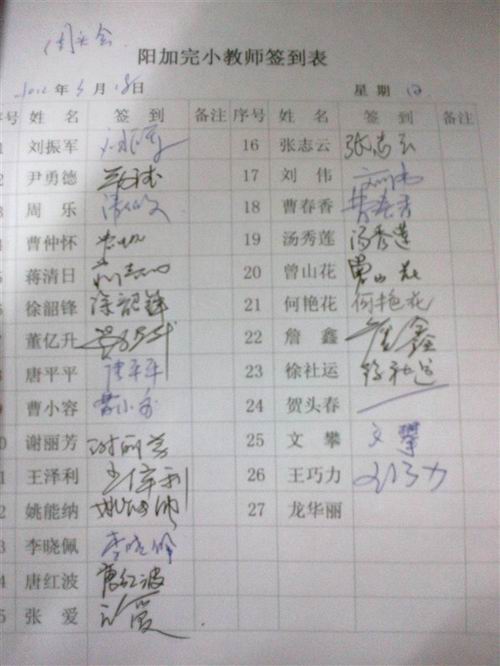 周前会
阳加完小教师签到表
2012年5月18日 星期日
序号 姓名 签到 备注 序号 姓名 签到 备注
1 刘振军 刘振军 16 张志云 张志云
2 尹勇德 17 刘伟 刘伟
3 周乐 18 曹春香 曹春香
4 曹仲怀 19 汤秀莲 汤秀莲
5 蒋清日 20 曾山花 曾山花
6 徐韶锋 徐韶锋 21 何艳花 何艳花
7 董亿升 22 詹鑫 詹鑫
8 唐平平 唐平平 23 徐社运 徐社运
9 曹小容 曹小容 24 贺头春
10 谢丽芳 谢丽芳 25 文攀 文攀
11 王泽利 26 王巧力 王巧力
12 姚能纳 姚能纳 27 龙华丽
13 李晓佩 李晓佩
14 唐红波 唐红波
15 张爱 张爱